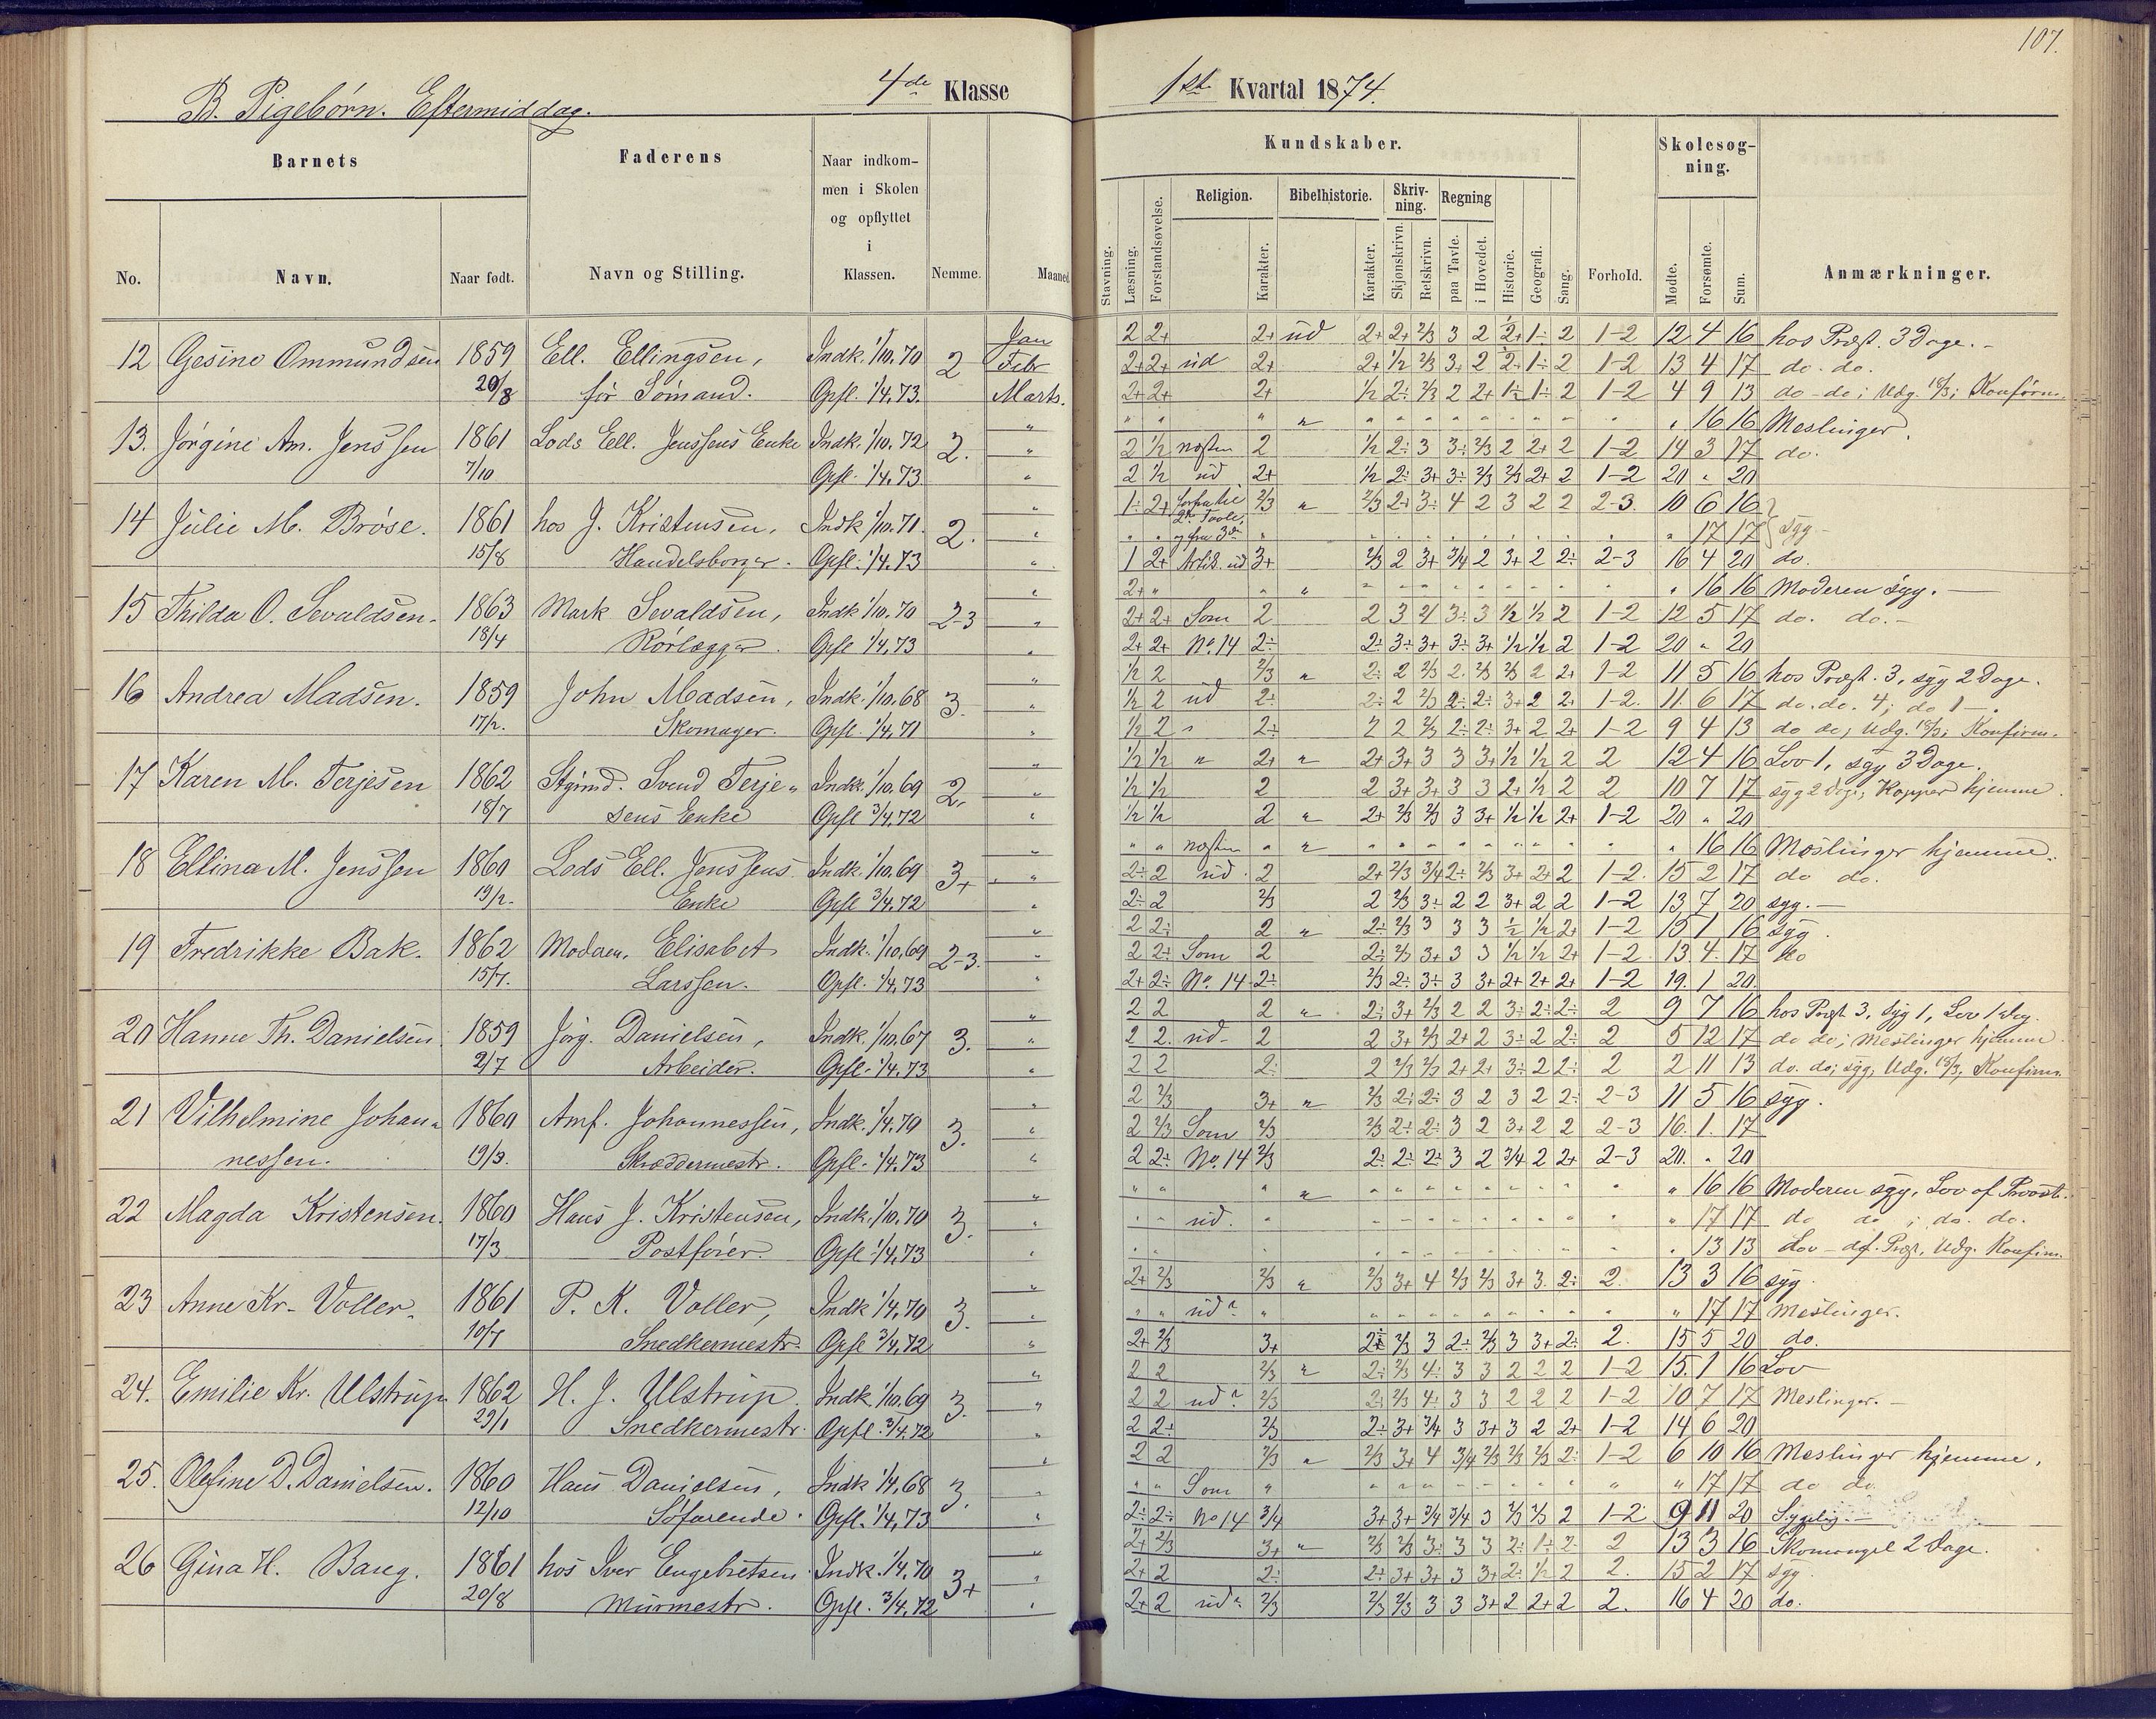 107.
B. Pigebørn. Eftermiddag. 4de Klasse
1ste Kvartal 1874.
Barnets
Faderens
Naar indkom-
men i Skolen
og opflyttet
i
Klassen.
No. Navn. Naar født. Navn og Stilling. Nemme. Maaned
Kundskaber.
Skolesøg-
ning.
Stavning. Læsning. Forstandsøvelse. Religion. Karakter. Bibelhistorie. Karakter. Skriv-
ning. Skjønskrivn. Retskrivn. Regning paa Tavle. i Hovedet. Historie. Geografi. Sang. Forhold. Mødte. Forsømte. Sum. Anmærkninger.
12 Gesine Ommundsen 1859 Ell. Ellingsen, Indk. 1/10.70 2 Jan
Febr
20/8 før Sømand. Opfl. 1/4.73. Marts.
2 2+ 2+ ud 2+ 2+ 2/3 3 2 1–2 12 4 16 hos Præst. 3 Dage.
2+ 2+ ud 2+ 2+ 1/2 2/3 1–2 13 4 17 do. do.
2+ 2+ 2+ 1/2 2÷ 2/3 2 2+ 1–2 4 9 13 do - do; Udg. 18/3; Konfirm.
13. Jørgine Am. Jenssen 1861 Lods Ell. Jenssens Enke Indk. 1/10.72 2.
7/10 Opfl. 1/4.73
" 16 16 Meslinger.
2 1/2 næsten 2 1/2 2÷ 3 3÷ 2/3 2 2+ 2 1–2 14 3 17 do.
2 1/2 ud 2+ 1/2 2÷ 3+ 3÷ 2/3 2/3 2+ 2 1–2 20 " 20
14 Julie M. Brøse. 1861 hos J. Kristensen, Indk 1/10.71. 2.
15/8 Handelsborger. Opfl. 1/4.73
1÷ 2+ 2/3 " 2/3 2+ 3÷ 4 2 3 2 2 2–3. 10 6 16
" 17 17 syg
1 2+ Artik. ud 3+ 2/3 2 3+ 3/4 2 3+ 2 2÷ 2–3 16 4 20 do.
15 Thilda O. Sevaldsen. 1863 Mark Sevaldsen, Indk 1/10.70 2-3
18/4 Rørlægger. Opfl 1/4.73
2+ " " " 16 16 Moderen syg.
2+ 2+ Som 2 2 3 4 3÷ 3 1/2 1/2 2 1–2 12 5 17 do. do.
2+ 2+ No. 14 2÷ 2÷ 3÷ 3+ 3÷ 3+ 1/2 1/2 2 1–2 20 " 20
16 Andrea Madsen. 1859 John Madsen, Indk. 1/10.68 3.
17/2. Skomager. Opfl. 1/4.71
1/2 2 2/3 " 2÷ 2 2/3 2. 2/3 2/3 2 2+ 1–2 11 5 16 hos Præst. 3, syg 2 Dage.
1/2 2 ud 2÷ 2÷ 2 2/3 2÷ 2÷ 3+ 2 2+ 1–2. 11. 6 17 do. do. 4; do 1
1/2 2 2÷ 2 2 2/3 2÷ 2÷ 3+ 2 2+ 1–2 9 4 13 do do; Udg. 18/3; Konfirm.
17 Karen M. Terjesen 1862 Stymd. Svend Terje- Indk. 1/10.69 2.
18/7 sens Enke Opfl 3/4.72
1/2 1/2 " 2+ " 2+ 3+ 3 3 3+ 1/2 1/2 2 2 12 4 16 Lov 1, syg 3 Dage.
1/2 1/2 2 2 3+ 3+ 3 3 2+ 1/2 2 2 10 7 17 syg 2 Dge, Kopper hjemme.
1/2 1/2 2 " 2+ 2/3 2/3 3 3+ 1/2 1/2 2+ 1–2 20 " 20
18 Ellina M. Jenssen 1860 Lods Ell. Jenssens Indk. 1/10.69 3+
19/2. Enke Opfl 3/4.72
" " næsten " " 16 16 Meslinger hjemme.
2÷ 2 ud. 2 2+ 2/3 3/4 2÷ 2/3 3+ 2+ 2 1–2. 15 2 17 do do.
2÷ 2 2/3 2 2/3 3÷ 2 2 3+ 2 2 1–2 13 7 20 syg.
19 Fredrikke Bak. 1862 Moderen. Elisabet Indk. 1/10.69 2-3.
15/7. Larssen. Opfl. 1/4.73
2 2÷ 2 " 2÷ 2/3 3 3 3 1/2 1/2 2+ 1–2 15 1 16 syg.
2 2÷ Som 2 2÷ 2/3 3+ 3 3 1/2 1/2 2+ 1–2. 13 4. 17 do
2+ 2÷ No. 14 2÷ 2/3 2÷ 3÷ 3 3+ 2+ 2+ 2+ 1–2 19. 1 20.
20 Hanne Th. Danielsen. 1859 Jørg. Danielsen, Indk. 1/10.67 3.
2/7 Arbeider. Opfl. 1/4.73
2 2 2 " 2÷ 3+ 2/3 2 2 3÷ 2÷ 2÷ 2 9 7 16 hos Præst 3, syg 1, Lov 1 Dag.
2 2. ud 2 2 3+ 2/3 2+ 2 3÷ 2 2÷ 2 5 12 17 do do; Meslinger hjemme.
2 2 2÷ 2 2/3 2/3 2+ 2+ 3÷ 2 2÷ 2 2 11 13 do. do; syg, Udg. 18/3, Konfirm.
21 Vilhelmine Johan- 1860 Amf. Johannessen, Indk. 1/4.70 3.
nessen. 19/3. Skræddermestr. Opfl. 1/4.73
2 2/3 3+ " 2/3 2÷ 2÷ 3 2 3 2 2÷ 2–3 11 5 16 syg.
2 2/3 Som 2/3 2/3 2÷ 2÷ 3 2 3+ 2 2 2–3 16. 1. 17
2 2÷ No. 14 2/3 2÷ 2÷ 2÷ 3 2 3/4 2 2+ 2–3 20. " 20
22 Magda Kristensen. 1860 Hans J. Kristensen, Indk. 1/10.70 3.
17/3 Postfører. Opfl 1/4.73
" " " " " 16 16 Moderen syg, Lov af Provst.
ud. " 17 17 do do; do. do.
" 13 13 Lov – af. Præst, Udg. Konfirm.
23 Anne Kr. Voller. 1861 P. K. Voller, Indk 1/4.70 3.
10/7 Snedkermestr. Opfl 3/4.72
2+ 2/3 2/3 " 2/3 3+ 4 2/3 2/3 3+ 3. 2÷ 2. 13 3 16 syg.
" " ud " " 17 17 Meslinger.
2+ 2/3 3+ 2/3 3 2÷ 2/3 3 3+ 2÷ 2. 15 5 20 do.
24. Emilie Kr. Ulstrup 1862 H. J. Ulstrup. Indk 1/10.69 3.
29/1 Snedkermestr. Opfl. 3/4.72
2 2 2/3 " 2÷ 2/3 4÷ 3 3 2 2 2 1–2 15. 1 16 Lov
2 2 ud 2/3 2÷ 2/3 4÷ 3 3 2 2 2 1–2 10 7 17 Meslinger.
2 2÷ 2/3 2÷ 3+ 3/4 3 3+ 3 2 2+ 1–2 14 6 20
25. Olefine D. Danielsen. 1860 Hans Danielsen, Indk 1/4.68 3.
12/10 Søfarende. Opfl. 1/4.73
2 2 2/3 " 2/3 3+ 4 3/4 2/3 2/3 2/3 2÷ 1–2 6 10 16 Meslinger hjemme.
" " Som " " 17 17 do do.
2÷ 2÷ No 14 3/4 3+ 3+ 3/4 3/4 3 2/3 2/3 2 1–2 9 11 20 Sygelig.
26 Gina H. Bang. 1861 hos Iver Engebretsen. Indk. 1/4.70 3+
20/8 Murmestr. Opfl. 3/4.72
2+ 2/3 3+ " 2/3 2/3 3÷ 3 3 2÷ 1÷ 2. 2 13 3 16 Skomangel 2 Dage.
2+ 2 2÷ 2+ 3+ 3+ 3 3+ 2÷ 1/2 2 2. 15 2 17 syg
2+ 2 ud 2/3 2/3 2/3 3 3 3+ 2 2+ 2 2. 16 4 20 do.